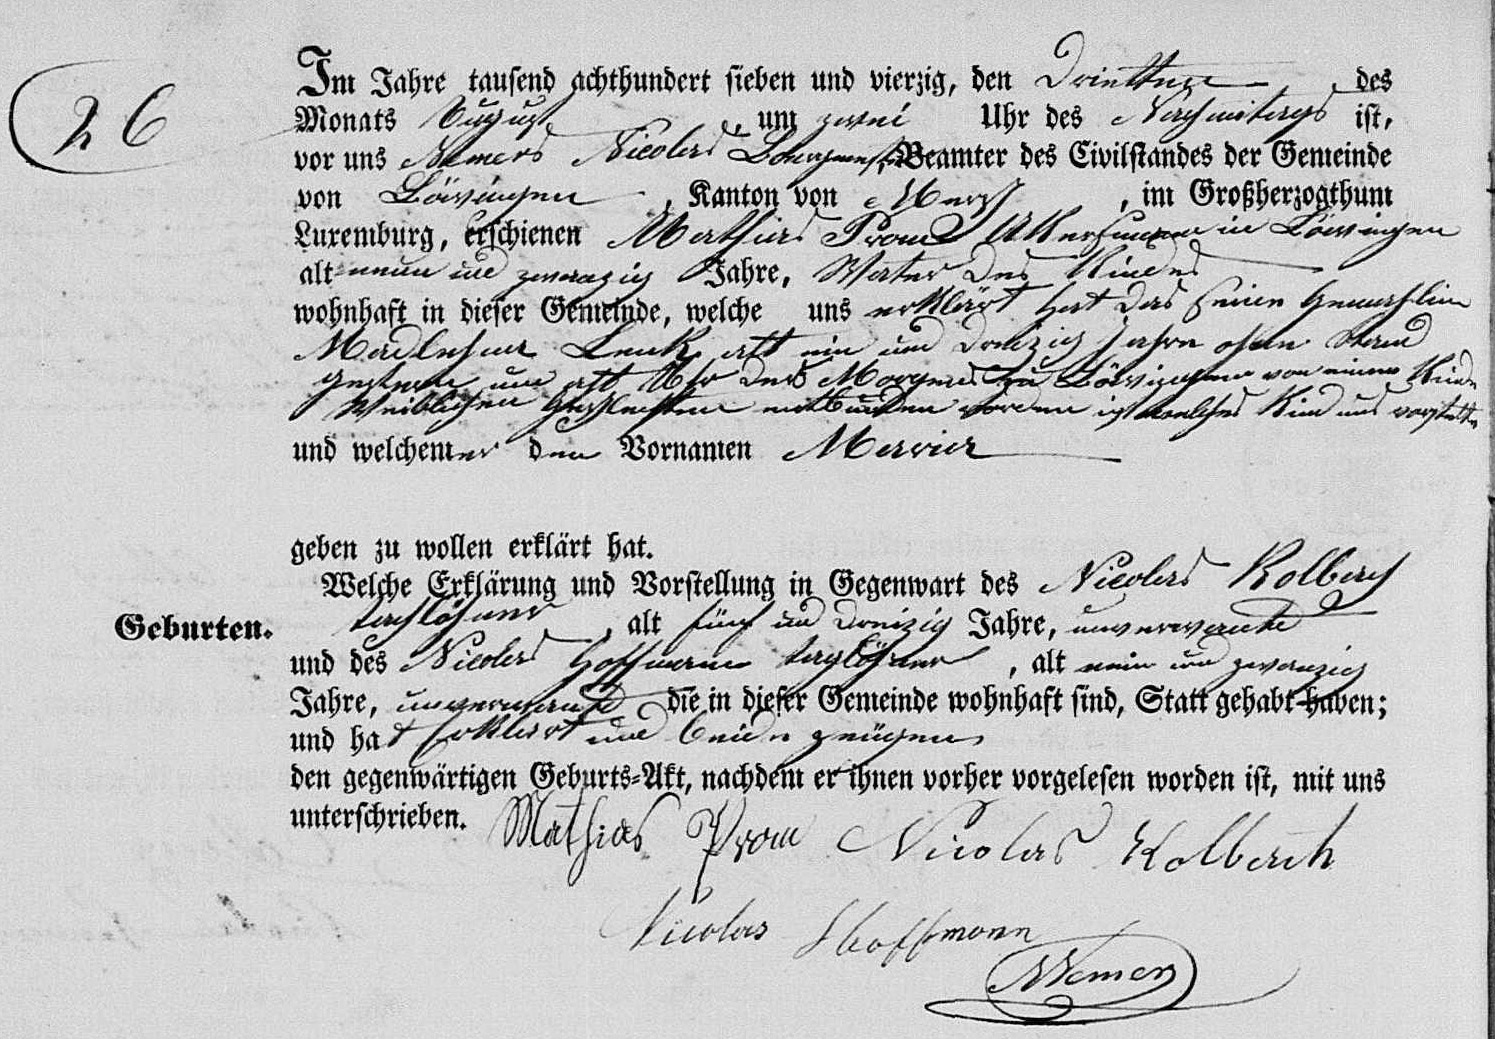 26
Im Jahre tausend achthundert sieben und vierzig, den Driettne des
Monats August, um zwei Uhr des Nachmitags ist,
vor uns Nemers Nicolas Beamter des Civilstandes der Gemeinde
von Lövingen, Kanton von Mersch, im Großherzogthum
Luxemburg, erschienen Mathias Prom Akersmann in Lövingen
alt neun und zwanzig Jahre, Vater des Kindes
wohnhaft in dieser Gemeinde, welche uns erklärt hat das seine Gemahlin
Madlehna Lenk alt ein und dreizig Jahre ohne Stand
gestern um att Uhr des Morgens zu Lövingen von einem Kinde
Weiblichen Geschlechten entbunden worden ist welches Kind uns vorstelte
und welchem er den Vornamen Maria
geben zu wollen erklärt hat.
Welche Erklärung und Vorstellung in Gegenwart des Nicolas Kolbach
Geburten.
taglöhner, alt fünf und dreizig Jahre, unverwante
und des Nicolas Hoffmann taglöhner, alt nein und zwanzig
Jahre, unverwante die in dieser Gemeinde wohnhaft sind, Statt gehabt haben;
und hat Erklärt und beide zeugen
den gegenwärtigen Geburts=Akt, nachdem er ihnen vorher vorgelesen worden ist, mit uns
unterschrieben.
Mathias Prom Nicolas Kolbach
Nicolas Hoffmann
NNemers